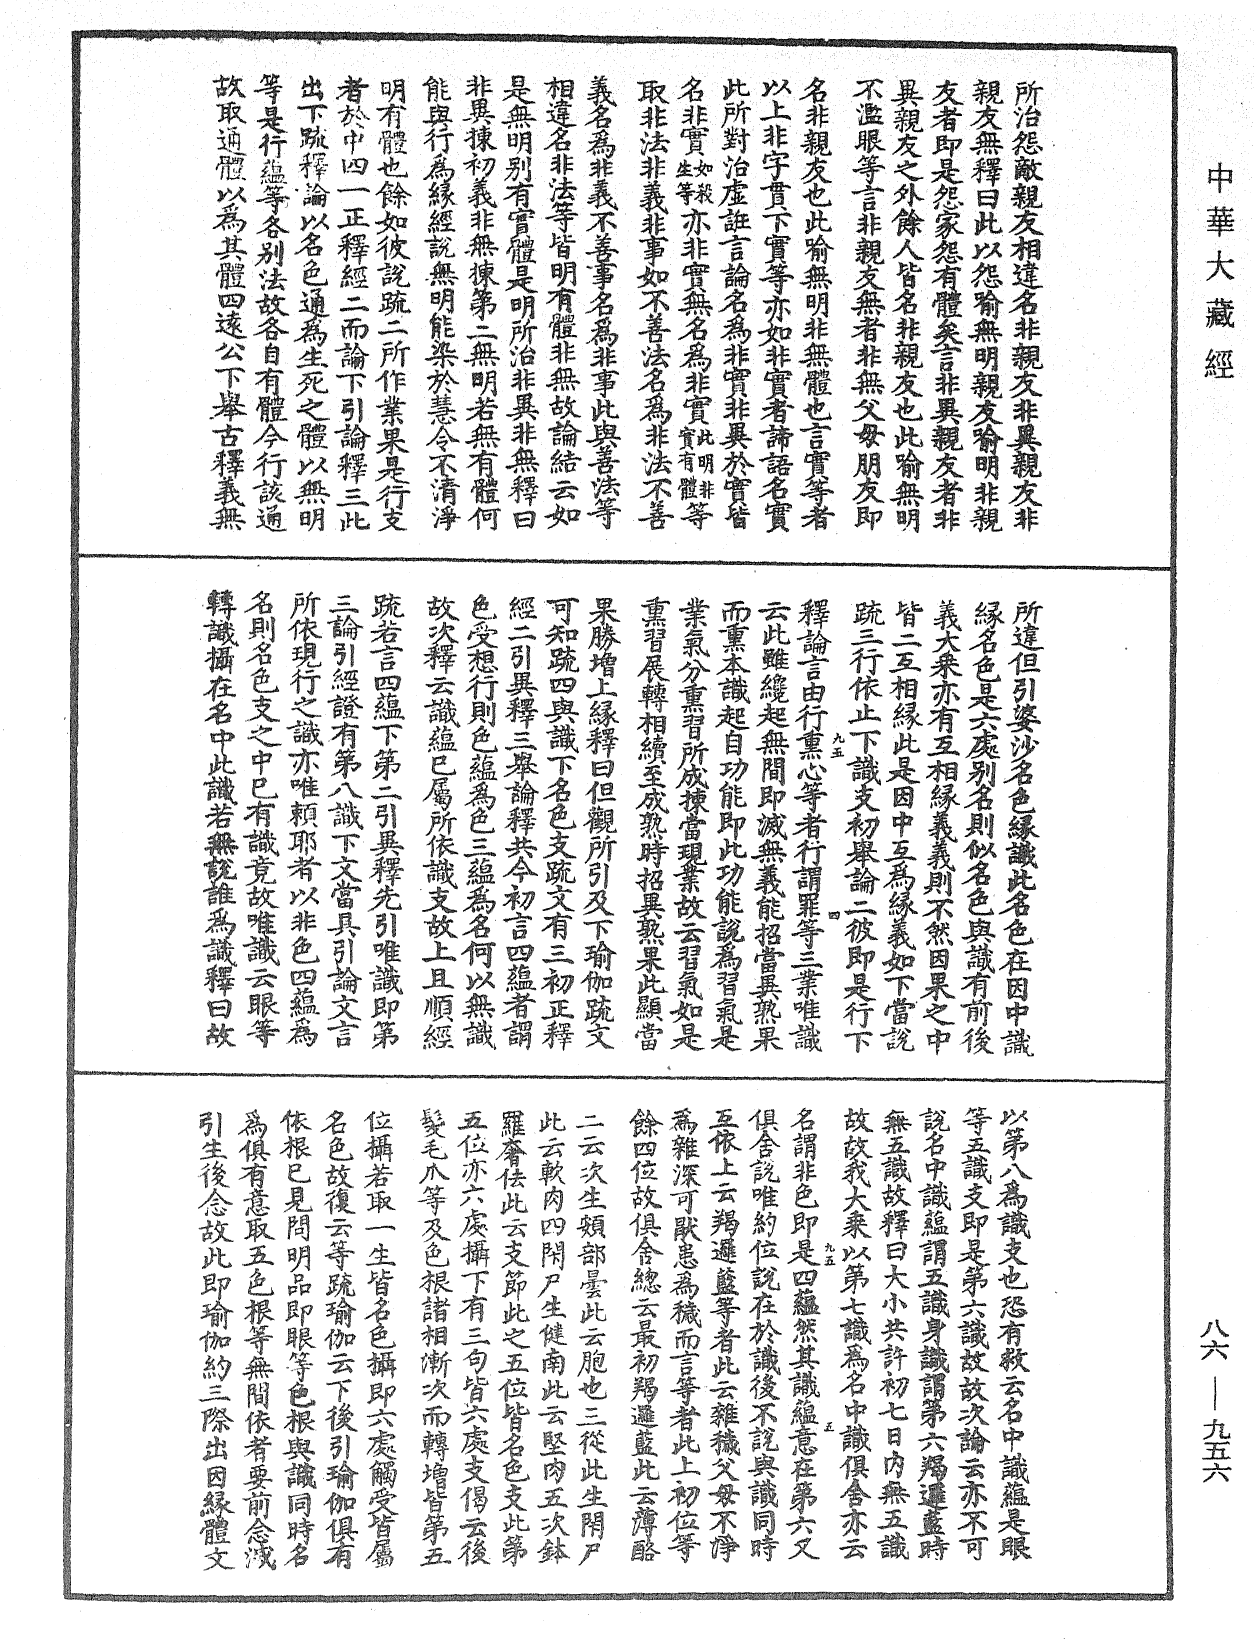 中華大藏經
所治怨敵親友相違名非親友非異親友非
親友無釋曰此以怨喻無明親友喻明非親
友者即是怨家怨有體矣言非異親友者非
異親友之外餘人皆名非親友也此喻無明
不濫眼等言非親友無者非無父母朋友即
名非親友也此喻無明非無體也言實等者
以上非字貫下實等亦如非實者諦語名實
此所對治虛誑言論名為非實非異於實皆
名非實如殺生等亦非實無名為非實此明非實有體等
取非法非義非事如不善法名為非法不善
義名為非義不善事名為非事此與善法等
相違名非法等皆明有體非無故論結云如
是無明別有實體是明所治非異非無釋曰
非異揀初義非無揀第二無明若無有體何
能與行為緣經說無明能染於慧令不清淨
明有體也餘如彼說疏二所作業果是行支
者於中四一正釋經二而論下引論釋三此
出下疏釋論以名色通為生死之體以無明
等是行蘊等各別法故各自有體今行該通
故取通體以為其體四遠公下舉古釋義無
所違但引婆沙名色緣識此名色在因中識
緣名色是六處別名則似名色與識有前後
義大乘亦有互相緣義義則不然因果之中
皆二互相緣此是因中互為緣義如下當說
疏三行依止下識支初舉論二彼即是行下
釋論言由行熏心等者行謂罪等三業唯識
云此雖纔起無間即滅無義能招當異熟果
而熏本識起自功能即此功能說為習氣是
業氣分熏習所成揀當現業故云習氣如是
熏習展轉相續至成熟時招異熟果此顯當
果勝增上緣釋曰但觀所引及下瑜伽疏文
可知疏四與識下名色支疏文有三初正釋
經二引異釋三舉論釋共今初言四蘊者謂
色受想行則色蘊為色三蘊為名何以無識
故次釋云識蘊已屬所依識支故上且順經
疏若言四蘊下第二引異釋先引唯識即第
三論引經證有第八識下文當具引論文言
所依現行之識亦唯賴耶者以非色四蘊為
名則名色支之中已有識竟故唯識云眼等
轉識攝在名中此識若無說誰為識釋曰故
以第八為識支也恐有救云名中識蘊是眼
等五識支即是第六識故故次論云亦不可
說名中識蘊謂五識身識謂第六羯邏藍時
無五識故釋曰大小共許初七日內無五識
故故我大乘以第七識為名中識俱舍亦云
名謂非色即是四蘊然其識蘊意在第六又
俱舍說唯約位說在於識後不說與識同時
互依上云羯邏藍等者此云雜穢父母不淨
為雜深可厭患為穢而言等者此上初位等
餘四位故俱舍總云最初羯邏藍此云薄酪
二云次生頞部曇此云胞也三從此生閉尸
此云軟肉四閉尸生健南此云堅肉五次鉢
羅奢佉此云支節此之五位皆名色支此第
五位亦六處攝下有三句皆六處支偈云後
髮毛爪等及色根諸相漸次而轉增皆第五
位攝若取一生皆名色攝即六處觸受皆屬
名色故復云等疏瑜伽云下後引瑜伽俱有
依根已見問明品即眼等色根與識同時名
為俱有意取五色根等無間依者要前念滅
引生後念故此即瑜伽約三際出因緣體文
九五
四
九五
五
八六—九五六